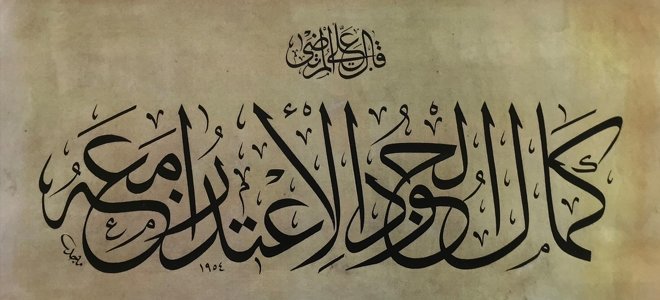 قال علي المرتضى
كمال الجود الإعتذار معه
ماجد ١٩٥٤